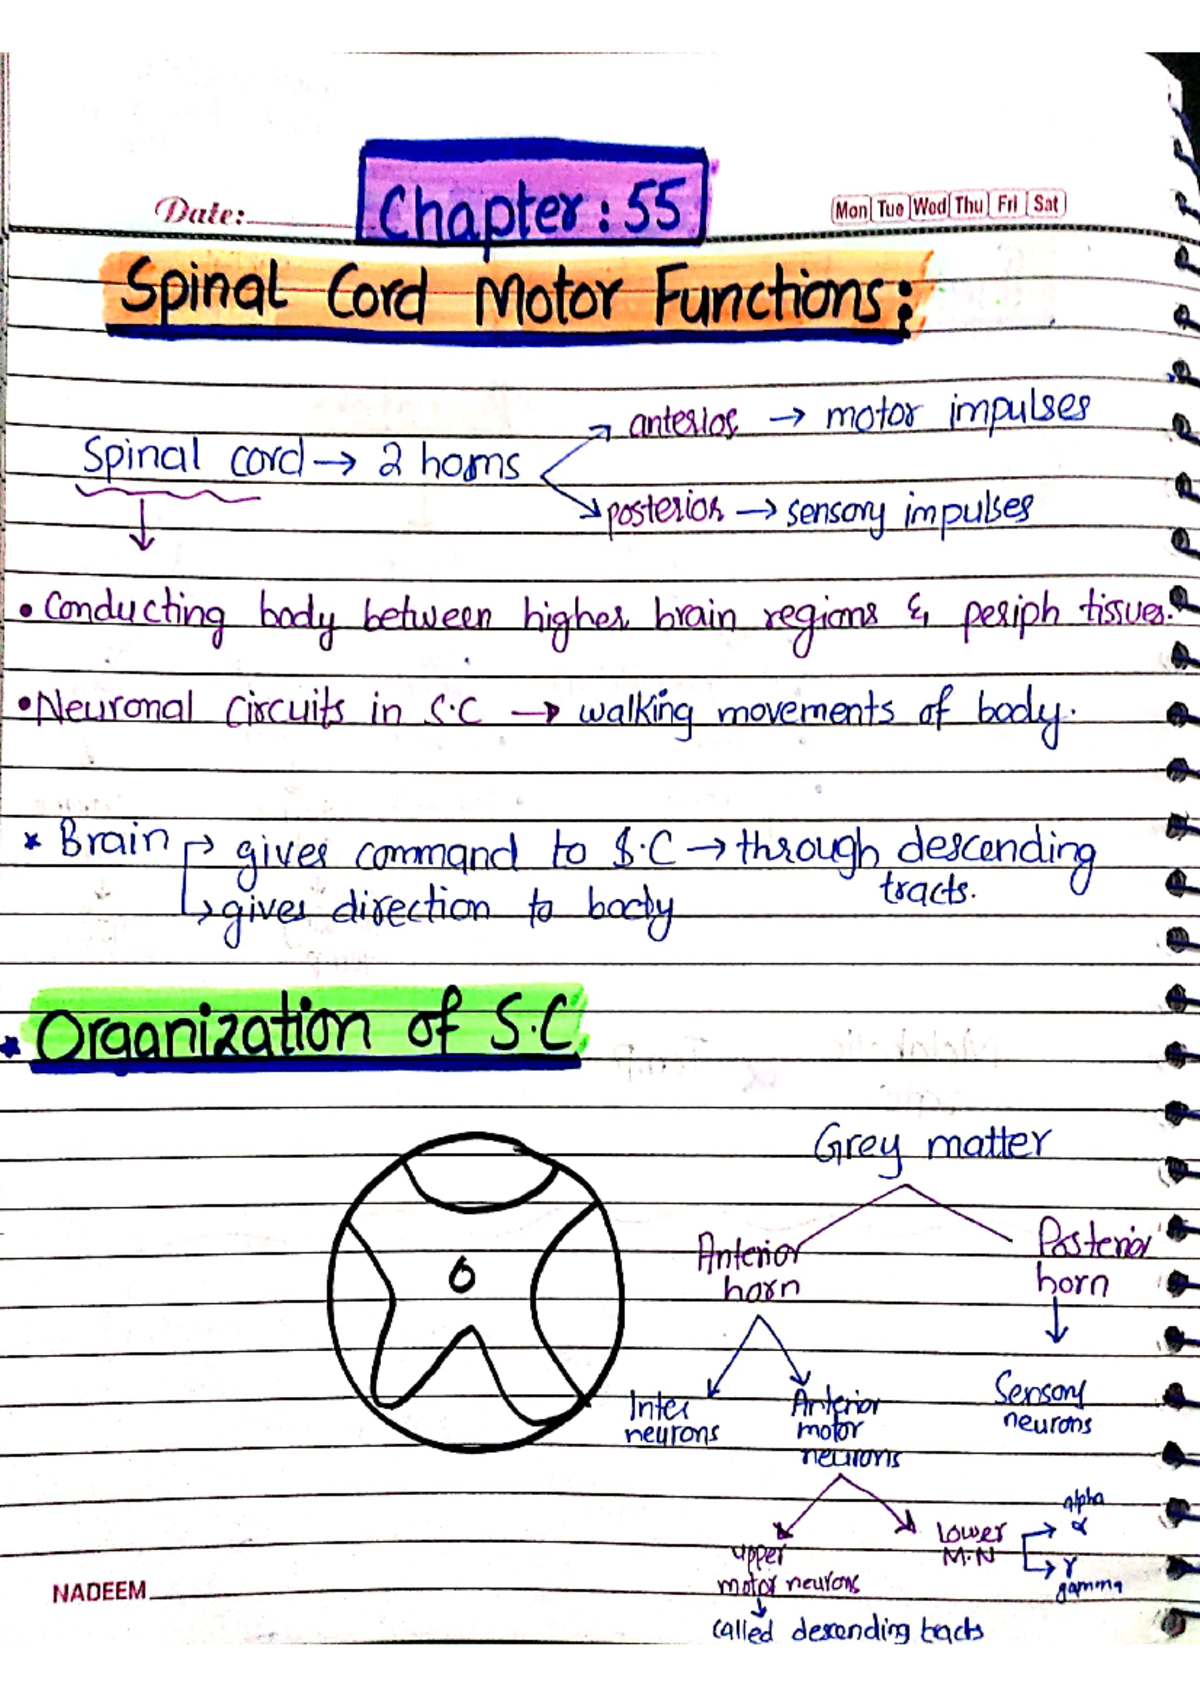 Chapter: 55
Date:
Mon Tue Wed Thu Fri Sat
Spinal Cord Motor Functions:
anterior → motor impulses
Spinal cord → 2 horns
posterior → sensory impulses
• Conducting body between higher brain regions & periph tissues.
• Neuronal Circuits in S.C → walking movements of body.
* Brain → gives command to S.C → through descending
tracts.
→ gives direction to body
* Organization of S.C
Grey matter
Anterior horn
Posterior horn
Inter neurons
Anterior motor neurons
Sensory neurons
upper motor neurons
Lower M.N
alpha α
γ gamma
called descending tracts
NADEEM